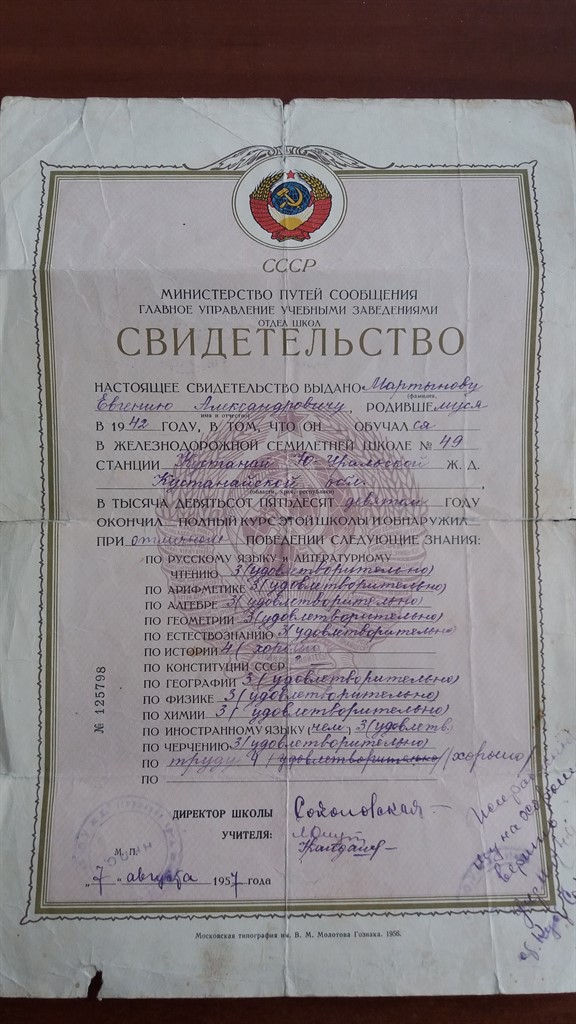 СССР
МИНИСТЕРСТВО ПУТЕЙ СООБЩЕНИЯ
ГЛАВНОЕ УПРАВЛЕНИЕ УЧЕБНЫМИ ЗАВЕДЕНИЯМИ
ОТДЕЛ ШКОЛ
СВИДЕТЕЛЬСТВО
НАСТОЯЩЕЕ СВИДЕТЕЛЬСТВО ВЫДАНО Мартынову
(фамилия,
Евгению Александровичу, РОДИВШЕМУСЯ
имя и отчество)
В 1942 ГОДУ, В ТОМ, ЧТО ОН ОБУЧАЛСЯ
В ЖЕЛЕЗНОДОРОЖНОЙ СЕМИЛЕТНЕЙ ШКОЛЕ № 49
СТАНЦИИ Кустанай Ю-Уральской Ж. Д.
Кустанайской обл.,
(области, края, республики)
В ТЫСЯЧА ДЕВЯТЬСОТ ПЯТЬДЕСЯТ девятом ГОДУ
ОКОНЧИЛ ПОЛНЫЙ КУРС ЭТОЙ ШКОЛЫ И ОБНАРУЖИЛ
ПРИ отличном ПОВЕДЕНИИ СЛЕДУЮЩИЕ ЗНАНИЯ:
ПО РУССКОМУ ЯЗЫКУ и ЛИТЕРАТУРНОМУ
ЧТЕНИЮ 3 (удовлетворительно)
ПО АРИФМЕТИКЕ 3 (удовлетворительно)
ПО АЛГЕБРЕ 3 (удовлетворительно)
ПО ГЕОМЕТРИИ 3 (удовлетворительно)
ПО ЕСТЕСТВОЗНАНИЮ 3 (удовлетворительно
ПО ИСТОРИИ 4 (хорошо
ПО КОНСТИТУЦИИ СССР
ПО ГЕОГРАФИИ 3 (удовлетворительно)
ПО ФИЗИКЕ 3 (удовлетворительно)
ПО ХИМИИ 3 (удовлетворительно)
ПО ИНОСТРАННОМУ ЯЗЫКУ (нем) 3 (удовлетв.
ПО ЧЕРЧЕНИЮ 3 (удовлетворительно)
ПО труду 4 (удовлетворительно) (хорошо)
ПО
№ 125798
ДИРЕКТОР ШКОЛЫ Соколовская
УЧИТЕЛЯ:
М. П.
„7" августа 1957 года
Московская типография им. В. М. Молотова Гознака. 1956.